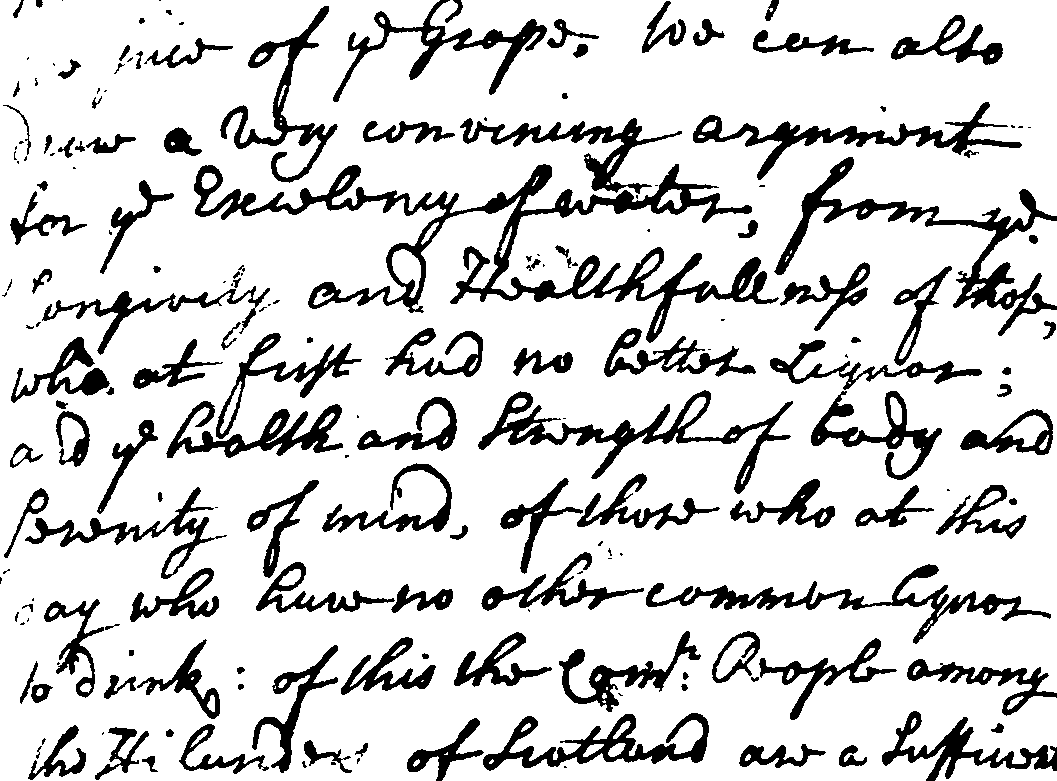 the juice of ye Grape. We can also
draw a Very convincing argument
for ye Excelency of water, from ye
Longivity and Healthfullness of those,
who at first had no better Liquor;
and ye health and Strength of body and
Serenity of mind, of those who at this
day who have no other common liquor
to drink: of this the Comn: People among
the Hilanders of Scotland are a Sufficient